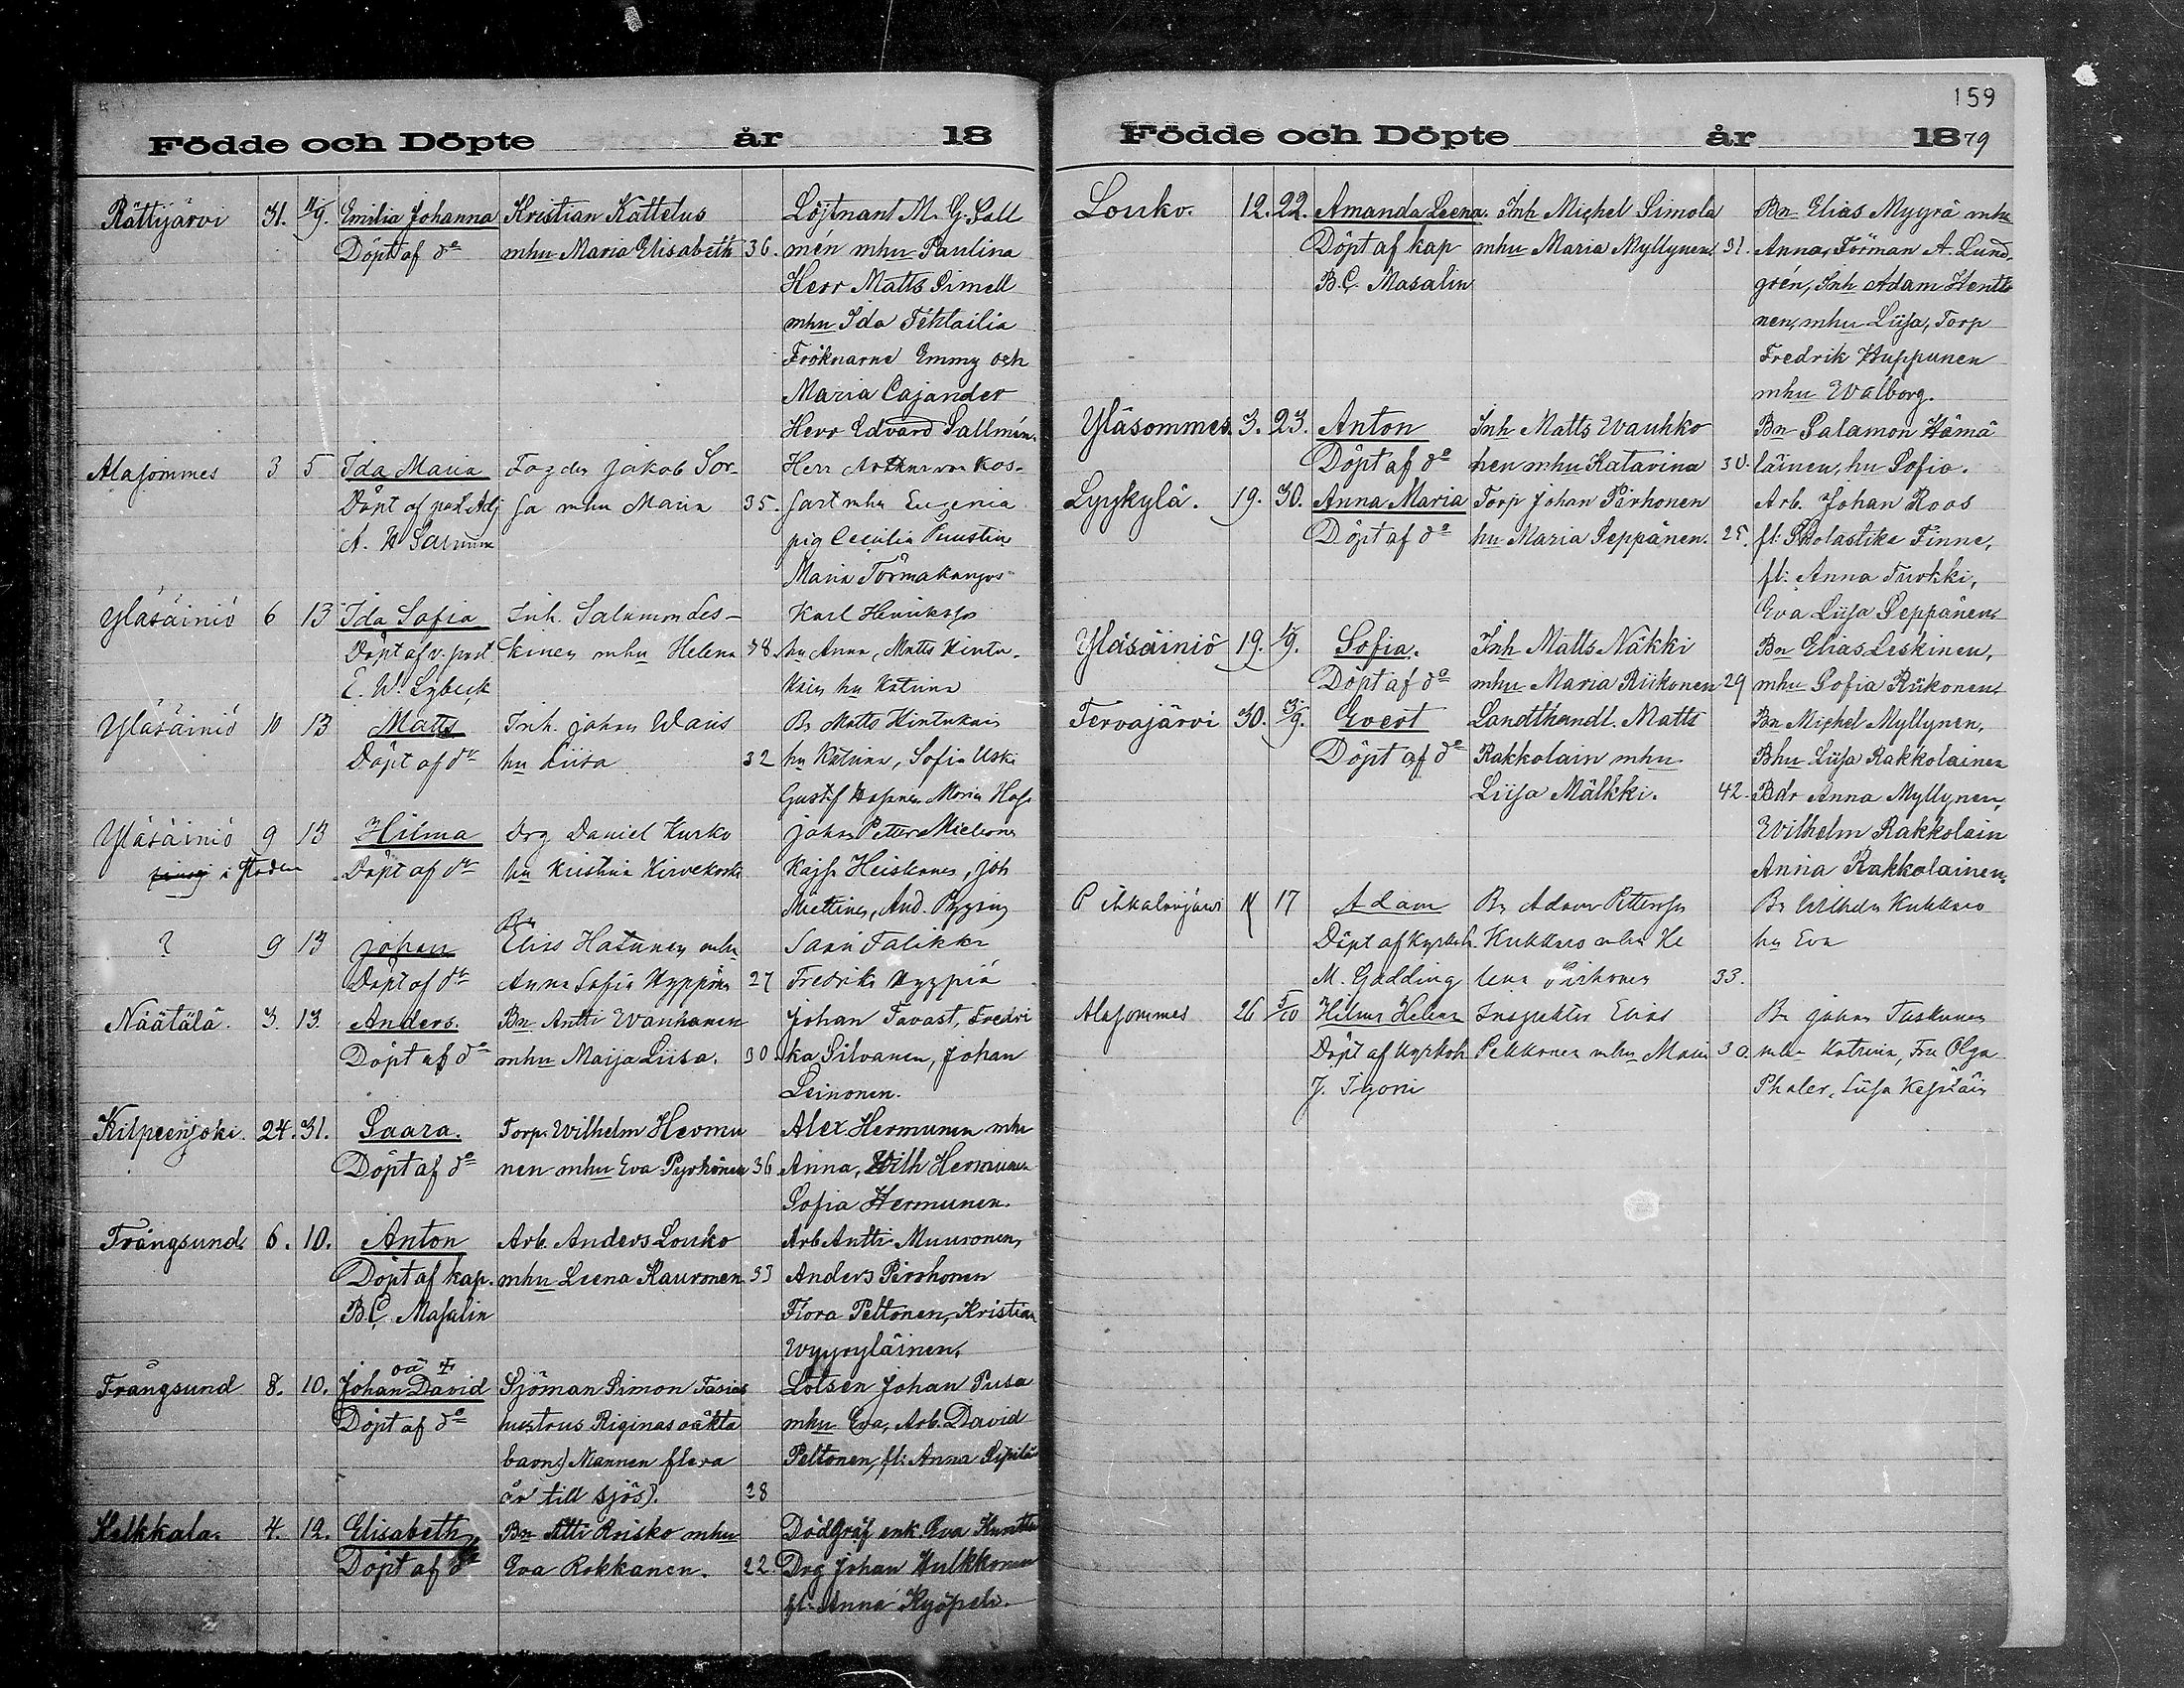 Födde och Döpte år 18
Rättijärvi 31. 11/9. Emilia Johanna Kristian Kattelus Löjtnant M. G. Sall
Döpt af do mhu Maria Elisabeth 36. mén mhu Paulina
Herr Matts Simell
mhu Ida
Fröknarne Emmy och
Maria Cajander
Herr Edvard Sallmén.
Alasommes 3 5 Ida Maria Jakob Sor- Herr Arthur von Kos-
Döpt af past. Adj sa mhu Maria 35. sart mhu Eugenia
A. W. pig Cecilia
Maria
Yläsäiniö 6 13 Ida Sofia Inh. Salamon Les- Karl Henriksson
Döpt af v. past. kinen mhu Helena 38. hu Anna, Matts Hintu-
E. W. Lybeck kain hu Katrina
Yläsäiniö 10 13 Matts Inh. Johan Wais Bn Matts Hintukain
Döpt af do hu Liisa 32 hu Katrina, Sofia Uski
Gustaf Maria
Yläsäiniö 9 13 Hilma Drg Daniel Kurko Johan Petter
i staden Döpt af do hu Kristina Kajsa Heiskanen, Joh
Miettinen, And.
Bn
? 9 13 Johan Elias Hatunen mhu Talikka
Döpt af do Anna Sofia Hyppönen 27 Fredrika Hyppiä
Näätälä. 3. 13. Anders. Bn Antti Wanhanen Johan Tavast, Fredri
Döpt af do mhu Maija Liisa. 30. ka Silvanen, Johan
Leinonen.
Kilpeenjoki. 24. 31. Saara. Torp. Wilhelm Hermu Alex. Hermunen mhu
Döpt af do nen mhu Eva Pyrhönen 36 Anna, Wilh Hermunen
Sofia Hermunen.
Trångsund. 6. 10. Anton Arb. Anders Louko Arb Antti Muuronen,
Döpt af kap. mhu Leena Kauronen 33 Anders Pirhonen
B. C. Masalin Flora Peltonen, Kristian
Wyyryläinen.
oä +
Trångsund 8. 10. Johan David Sjöman Simon Tasias Lotsen Johan Pusa
Döpt af do hustrus Riginas oäkta mhu Eva, Arb. David
barn) Mannen flera Peltonen, fl: Anna Sipilä
år till sjös). 28
Kelkkala. 4. 12. Elisabeth Bn Atti Risko mhu Dödgräf enk. Eva
Döpt af do Eva Rokkanen. 22. Drg Johan Hulkkonen
fl: Anna Kyöpeli.
159
Födde och Döpte år 1879
Louko. 12. 22. Amanda Leena. Inh Michel Simola Bn Elias Myyrä mhu
Döpt af kap mhu Maria Myllynen. 31. Anna, Förman A. Lund
B. C. Masalin grén, Inh Adam Hentto
nen, mhu Liisa, Torp
Fredrik Huppunen
mhu Walborg.
Yläsommes. 3. 23. Anton Inh Matts Wauhko Bn Salamon Hämä
Döpt af do nen mhu Katarina 30. läinen, hu Sofia.
Lyykylä. 19. 30. Anna Maria Torp Johan Pirhonen Arb. Johan Roos
Döpt af do hu Maria Seppänen. 25. fl: Skolastika Finne,
fl: Anna Turkki,
Eva Liisa Seppänen
Yläsäiniö 19. 1/9. Sofia. Inh Matts Näkki Bn Elias Leskinen,
Döpt af do mhu Maria Riikonen 29 mhu Sofia Riikonen.
Tervajärvi 30. 3/9. Evert Landthandl. Matts Bn Michel Myllynen,
Döpt af do Rakkolain mhu Bhu Liisa Rakkolainen
Liisa Mälkki. 42. Bdr Anna Myllynen,
Wilhelm Rakkolain
Anna Rakkolainen.
Pihkalanjärvi 17 Adam Bn Adam Pettersson Bn Wilhelm Kukkaro
Döpt af Kyrkoh. Kukkaro mhu He hu Eva
M. Gadding lena Pirhonen 33.
Alasommes 26 5/10 Hilma Helena Inspektor Elias Bn Johan Taskunen
Döpt af Kyrkoh Pekkonen mhu Maria 30. mhu Katrina, Fru Olga
J. Ph Liisa